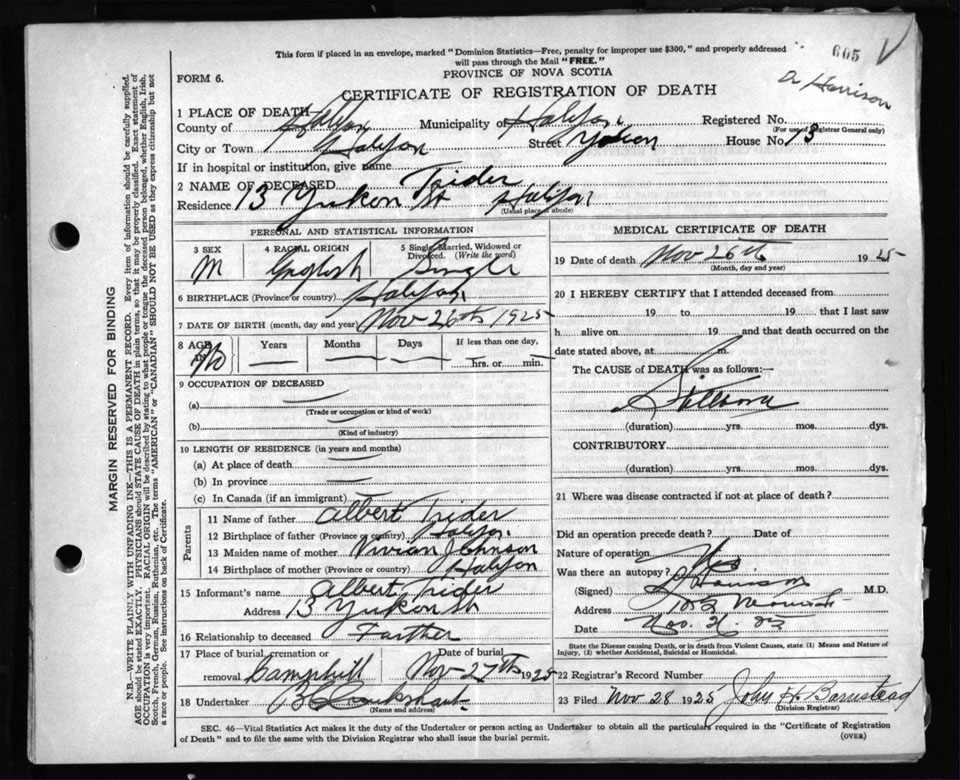 This form if placed in an envelope, marked "Dominion Statistics—Free, penalty for improper use $300," and properly addressed
will pass through the Mail "FREE."
605
FORM 6.
PROVINCE OF NOVA SCOTIA
CERTIFICATE OF REGISTRATION OF DEATH
Harrison
1 PLACE OF DEATH
County of Halifax Municipality of Halifax Registered No.
(For use of Registrar General only)
City or Town Halifax Street Yukon House No. 13
If in hospital or institution, give name
2 NAME OF DECEASED Trider
Residence 13 Yukon St Halifax
(Usual place of abode)
PERSONAL AND STATISTICAL INFORMATION
3 SEX 4 RACIAL ORIGIN 5 Single, Married, Widowed or
Divorced. (Write the word)
M English Single
6 BIRTHPLACE (Province or country) Halifax
7 DATE OF BIRTH (month, day and year) Nov 26th 1925
8 AGE Years Months Days If less than one day,
IN hrs. or min.
9 OCCUPATION OF DECEASED
(a)
(Trade or occupation or kind of work)
(b)
(Kind of industry)
10 LENGTH OF RESIDENCE (in years and months)
(a) At place of death
(b) In province
(c) In Canada (if an immigrant)
Parents
11 Name of father Albert Trider
12 Birthplace of father (Province or country) Halifax
13 Maiden name of mother Vivian Johnson
14 Birthplace of mother (Province or country) Halifax
15 Informant's name Albert Trider
Address 13 Yukon St
16 Relationship to deceased Farther
17 Place of burial, cremation or Date of burial
removal Camphill Nov 27th 1925
18 Undertaker
(Name and address)
MEDICAL CERTIFICATE OF DEATH
19 Date of death Nov 26th 1925
(Month, day and year)
20 I HEREBY CERTIFY that I attended deceased from
19 to 19 that I last saw
h alive on 19 and that death occurred on the
date stated above, at m.
The CAUSE of DEATH was as follows:—
Stillborn
(duration) yrs. mos. dys.
CONTRIBUTORY
(duration) yrs. mos. dys.
21 Where was disease contracted if not at place of death?
Did an operation precede death? Date of
Nature of operation
Was there an autopsy? No
(Signed) Harrison M.D.
Address
Date Nov.
State the Disease causing Death, or in death from Violent Causes, state (1) Means and Nature of
Injury, (2) whether Accidental, Suicidal or Homicidal.
22 Registrar's Record Number
23 Filed Nov 28 1925 John H Barnstead
(Division Registrar)
SEC. 46—Vital Statistics Act makes it the duty of the Undertaker or person acting as Undertaker to obtain all the particulars required in the "Certificate of Registration
of Death" and to file the same with the Division Registrar who shall issue the burial permit.
(OVER)
MARGIN RESERVED FOR BINDING
N.B.—WRITE PLAINLY WITH UNFADING INK—THIS IS A PERMANENT RECORD. Every item of information should be carefully supplied.
AGE should be stated EXACTLY. PHYSICIANS should STATE CAUSE OF DEATH in plain terms, so that it may be properly classified. Exact statement of
OCCUPATION is very important. RACIAL ORIGIN will be described by stating to what people or tongue the deceased person belonged, whether English, Irish,
Scotch, French, German, Russian, Ruthenian, etc. The terms "AMERICAN" or "CANADIAN" SHOULD NOT BE USED as they express citizenship but not
a race or people. See instructions on back of Certificate.